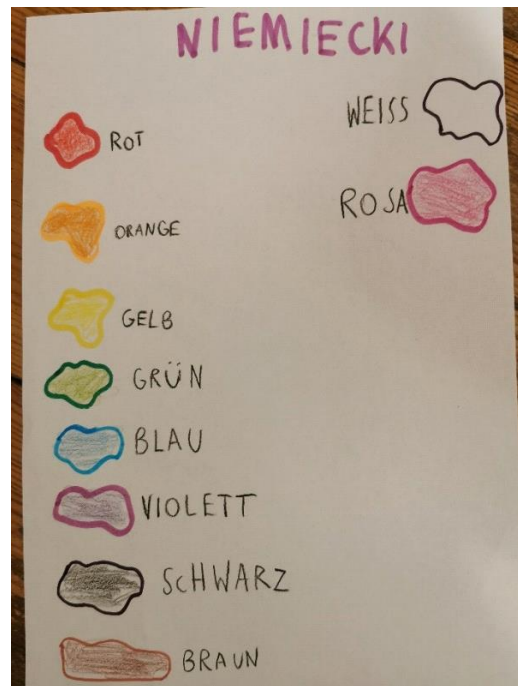 NIEMIECKI
ROT
ORANGE
GELB
GRÜN
BLAU
VIOLETT
ScHWARZ
BRAUN
WEISS
ROSA